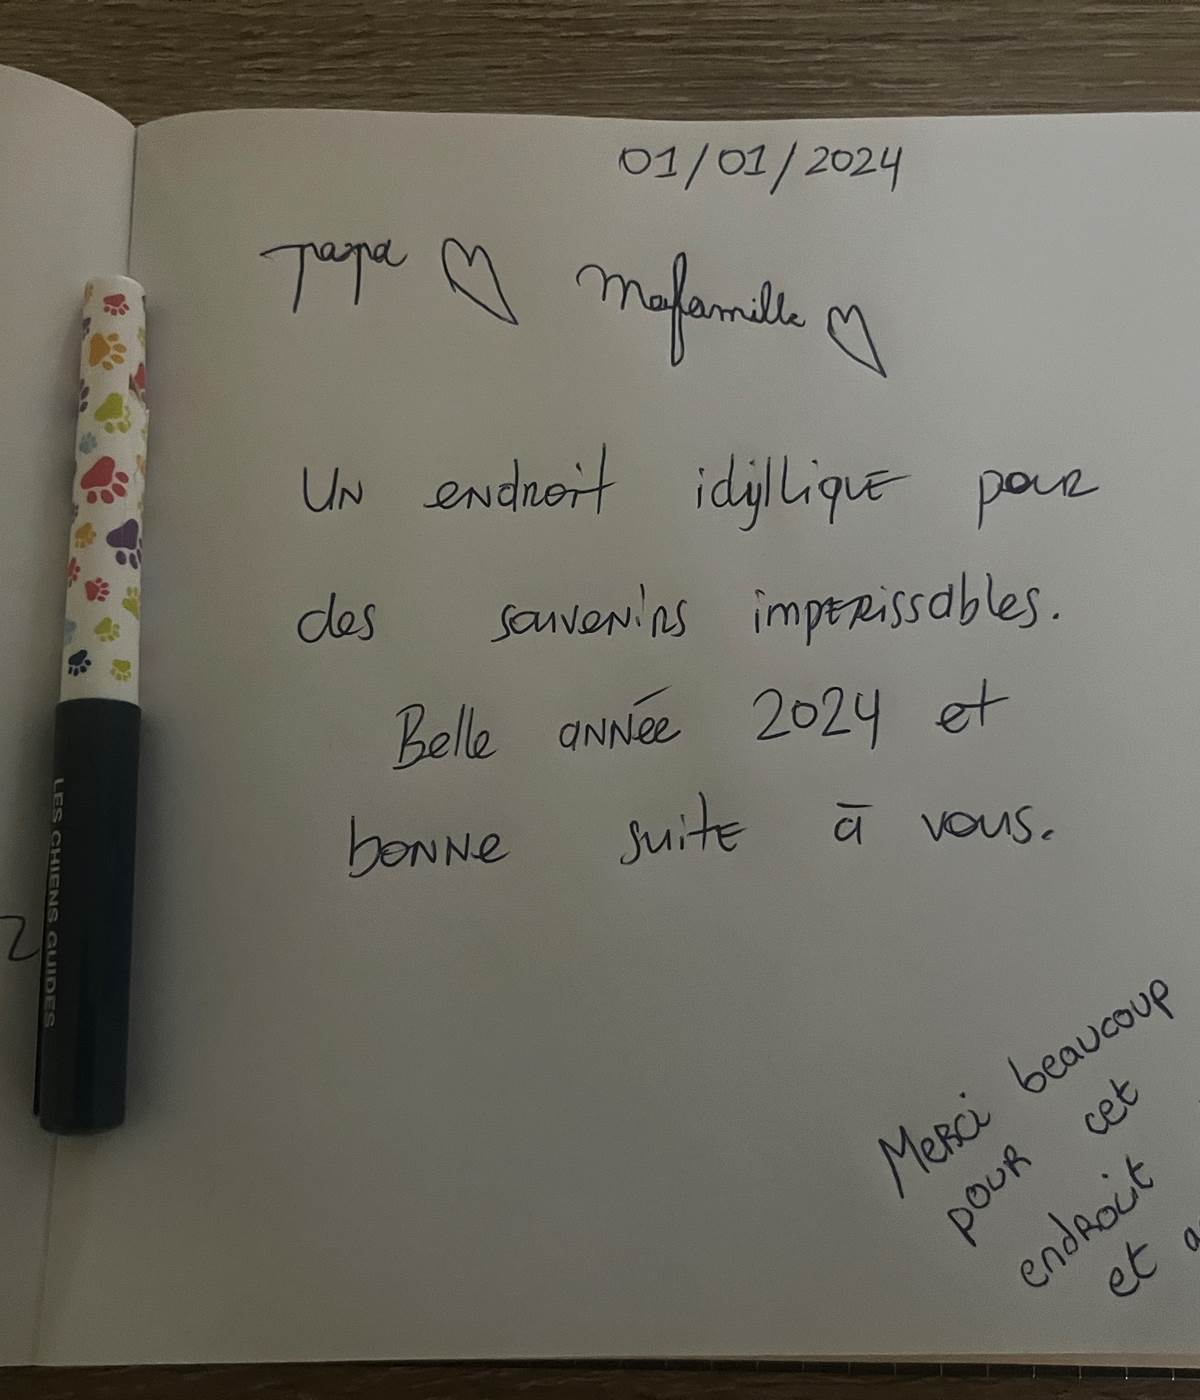 01/01/2024
papa ♡ Mafamille ♡
Un endroit idyllique pour
des souvenirs imperissables.
Belle année 2024 et
bonne suite à vous.
Merci beaucoup
pour cet
endroit
et
LES CHIENS GUIDES
2